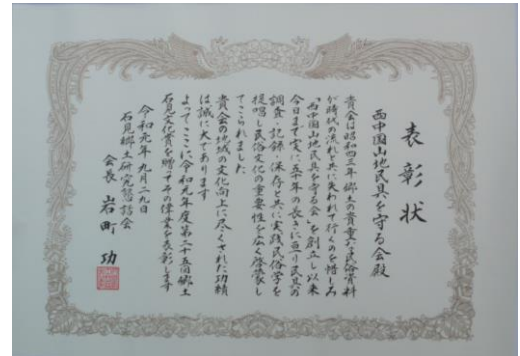 表彰状
西中国山地民具を守る会殿
貴会は昭和四三年郷土の貴重な民俗資料
が時代の流れと共に失われて行くのを惜しみ
「西中国山地民具を守る会」を創立し以来
今日まで実に五十年の長きに亘り民具の
調査・記録・保存と共に実践民俗学を
提唱し民俗文化の重要性を広く啓蒙し
てこられました
貴会の地域の文化向上に尽くされた功績
は誠に大であります
よってここに令和元年度第二十五回郷土
石見文化賞を贈ってその偉業を表彰します
令和元年九月二九日
石見郷土研究懇話会
会長 岩町 功